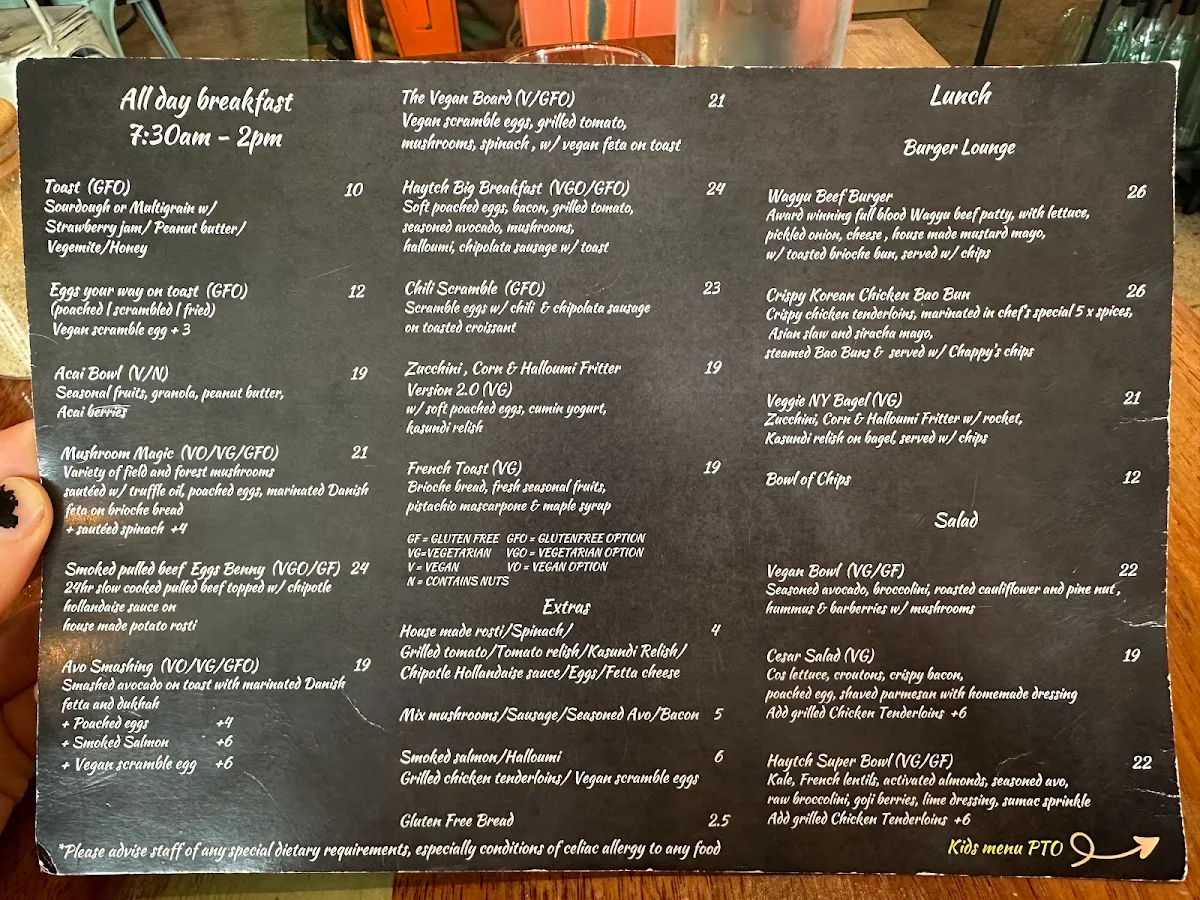 All day breakfast
7:30am - 2pm
Toast (GFO) 10
Sourdough or Multigrain w/
Strawberry jam/ Peanut butter/
Vegemite/Honey
Eggs your way on toast (GFO) 12
(poached | scrambled | fried)
Vegan scramble egg + 3
Acai Bowl (V/N) 19
Seasonal fruits, granola, peanut butter,
Acai berries
Mushroom Magic (VO/VG/GFO) 21
Variety of field and forest mushrooms
sautéed w/ truffle oil, poached eggs, marinated Danish
feta on brioche bread
+ sautéed spinach +4
Smoked pulled beef Eggs Benny (VGO/GF) 24
24hr slow cooked pulled beef topped w/ chipotle
hollandaise sauce on
house made potato rosti
Avo Smashing (VO/VG/GFO) 19
Smashed avocado on toast with marinated Danish
fetta and dukhah
+ Poached eggs +4
+ Smoked Salmon +6
+ Vegan scramble egg +6
The Vegan Board (V/GFO) 21
Vegan scramble eggs, grilled tomato,
mushrooms, spinach , w/ vegan feta on toast
Haytch Big Breakfast (VGO/GFO) 24
Soft poached eggs, bacon, grilled tomato,
seasoned avocado, mushrooms,
halloumi, chipolata sausage w/ toast
Chili Scramble (GFO) 23
Scramble eggs w/ chili & chipolata sausage
on toasted croissant
Zucchini , Corn & Halloumi Fritter 19
Version 2.0 (VG)
w/ soft poached eggs, cumin yogurt,
kasundi relish
French Toast (VG) 19
Brioche bread, fresh seasonal fruits,
pistachio mascarpone & maple syrup
GF = GLUTEN FREE GFO = GLUTENFREE OPTION
VG=VEGETARIAN VGO = VEGETARIAN OPTION
V = VEGAN VO = VEGAN OPTION
N = CONTAINS NUTS
Extras
House made rosti/Spinach/ 4
Grilled tomato/Tomato relish/Kasundi Relish/
Chipotle Hollandaise sauce/Eggs/Fetta cheese
Mix mushrooms/Sausage/Seasoned Avo/Bacon 5
Smoked salmon/Halloumi 6
Grilled chicken tenderloins/ Vegan scramble eggs
Gluten Free Bread 2.5
Lunch
Burger Lounge
Wagyu Beef Burger 26
Award winning full blood Wagyu beef patty, with lettuce,
pickled onion, cheese , house made mustard mayo,
w/ toasted brioche bun, served w/ chips
Crispy Korean Chicken Bao Bun 26
Crispy chicken tenderloins, marinated in chef's special 5 x spices,
Asian slaw and siracha mayo,
steamed Bao Buns & served w/ Chappy's chips
Veggie NY Bagel (VG) 21
Zucchini, Corn & Halloumi Fritter w/ rocket,
Kasundi relish on bagel, served w/ chips
Bowl of Chips 12
Salad
Vegan Bowl (VG/GF) 22
Seasoned avocado, broccolini, roasted cauliflower and pine nut ,
hummus & barberries w/ mushrooms
Cesar Salad (VG) 19
Cos lettuce, croutons, crispy bacon,
poached egg, shaved parmesan with homemade dressing
Add grilled Chicken Tenderloins +6
Haytch Super Bowl (VG/GF) 22
Kale, French lentils, activated almonds, seasoned avo,
raw broccolini, goji berries, lime dressing, sumac sprinkle
Add grilled Chicken Tenderloins +6
*Please advise staff of any special dietary requirements, especially conditions of celiac allergy to any food
Kids menu PTO